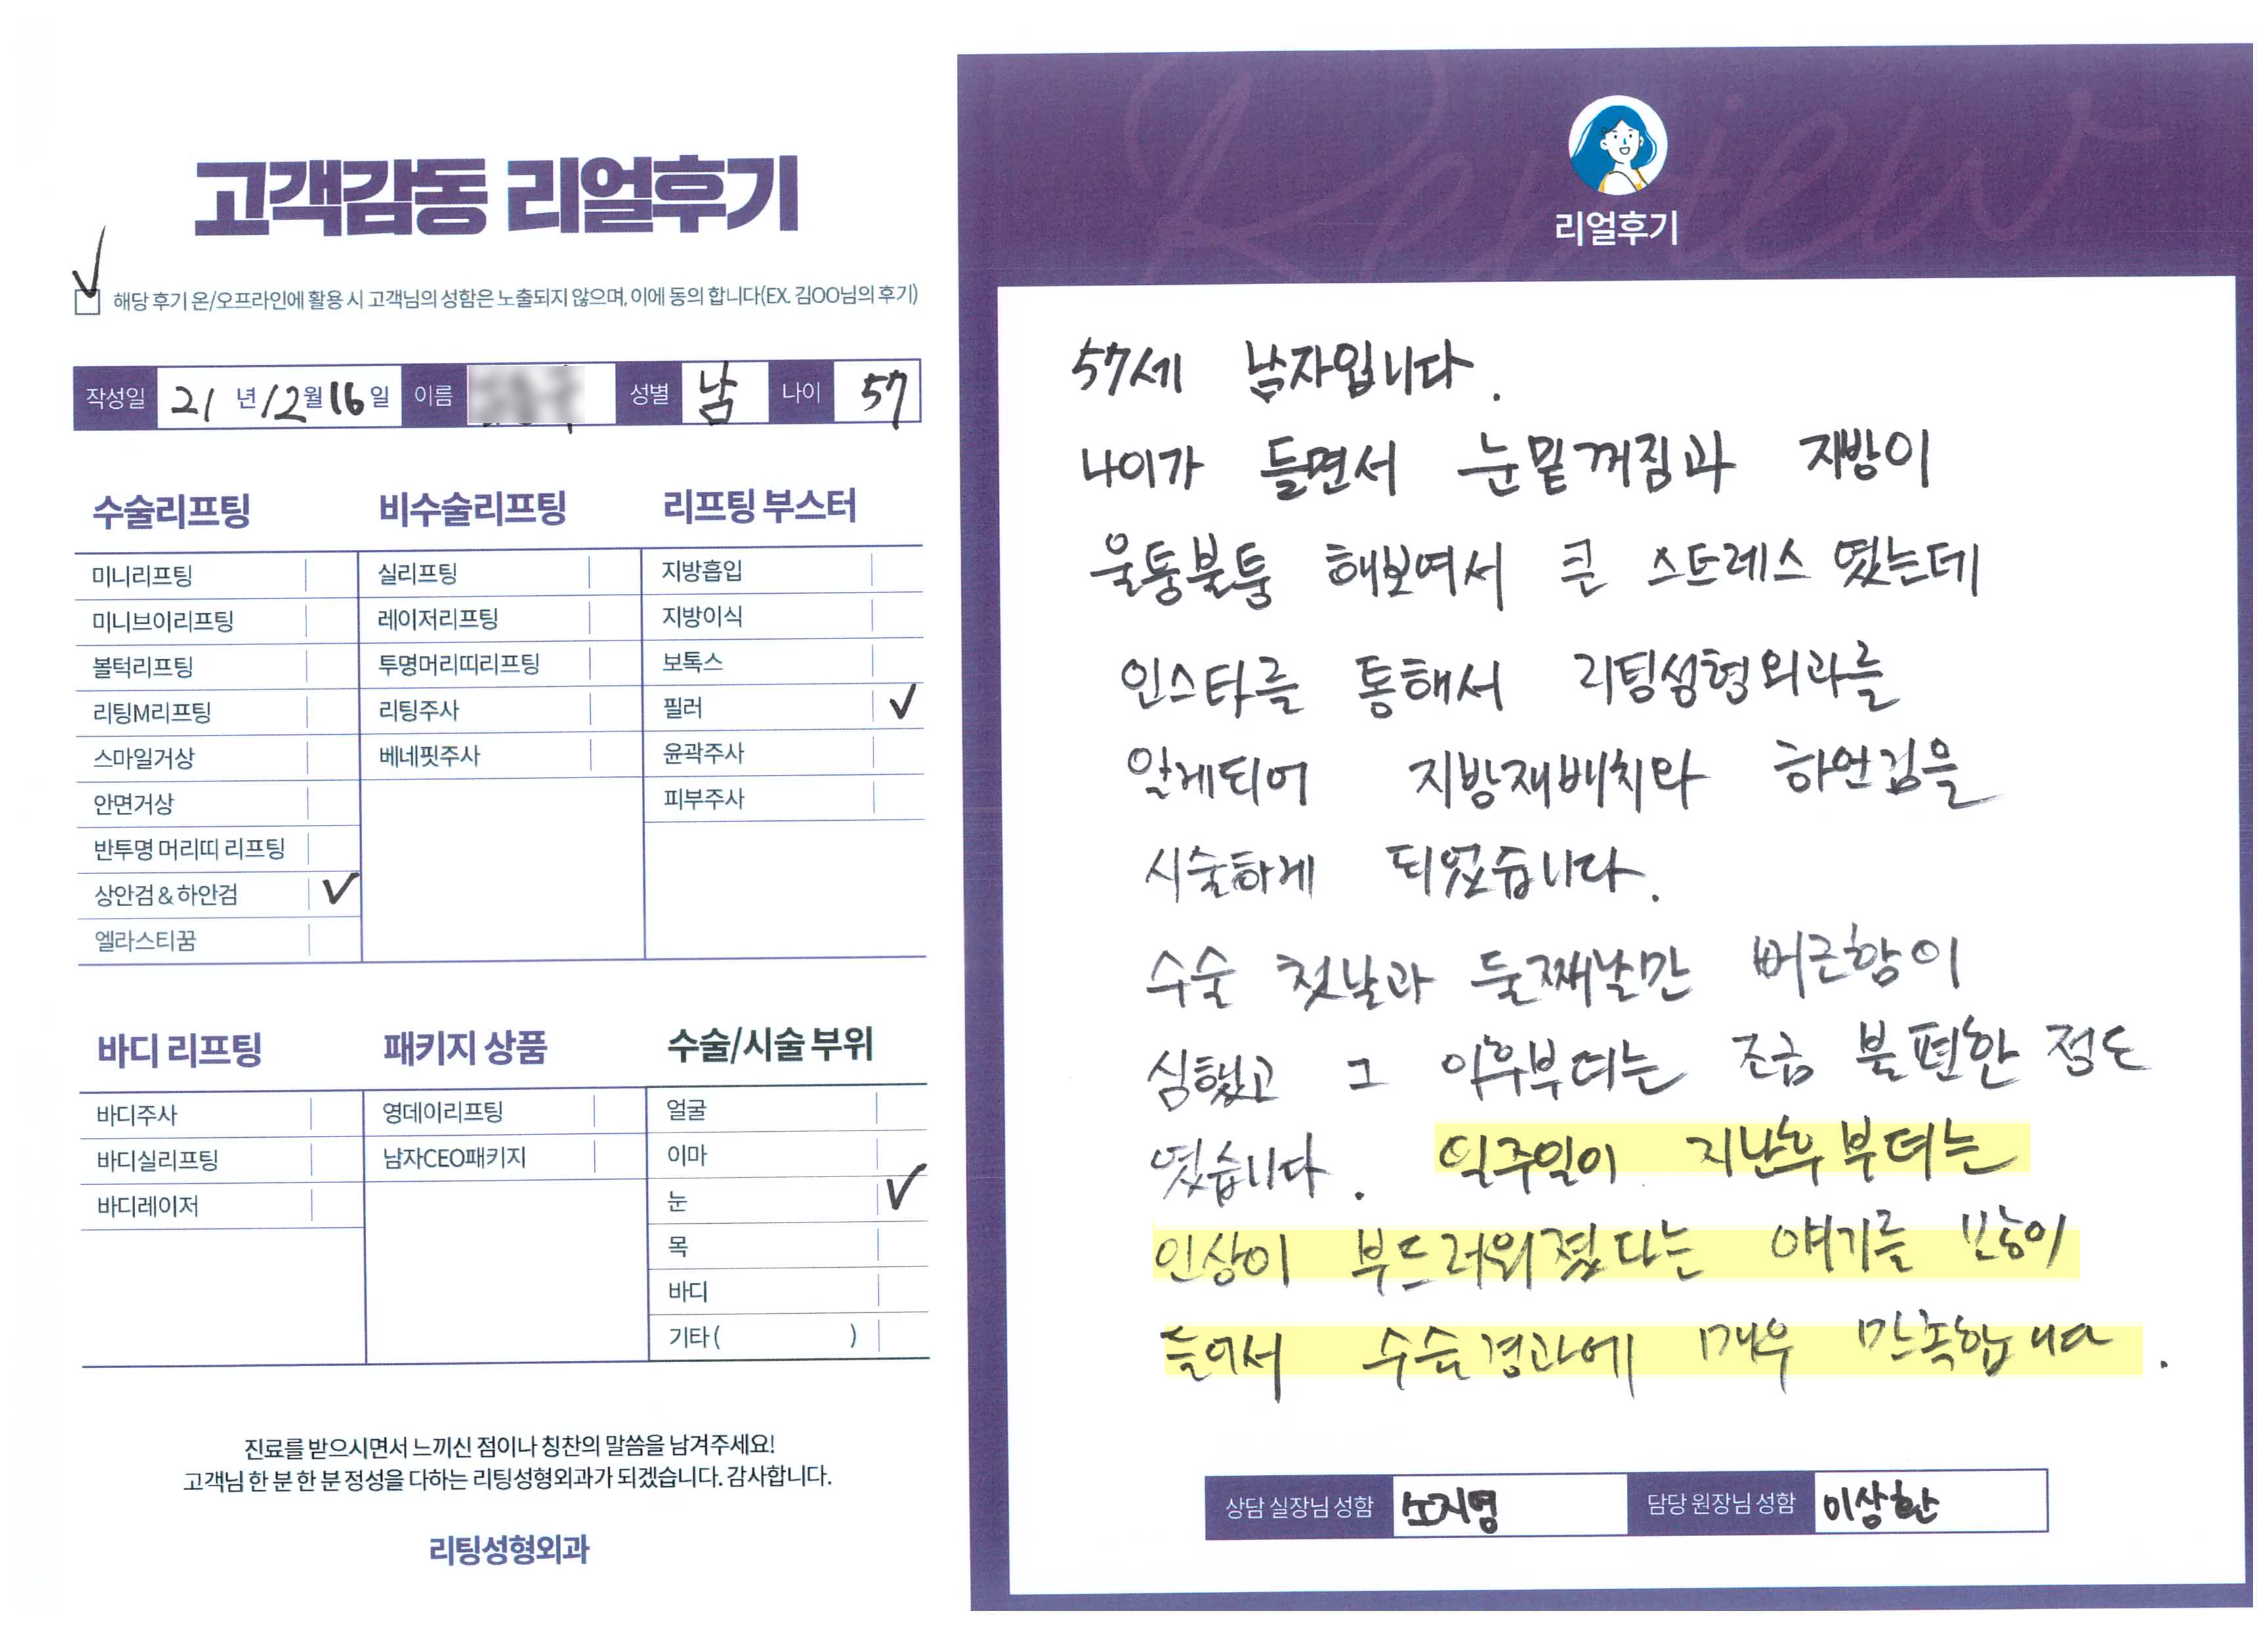 고객감동 리얼후기
✓ 해당 후기 온/오프라인에 활용 시 고객님의 성함은 노출되지 않으며, 이에 동의 합니다(EX. 김OO님의 후기)
작성일 21 년 12월 16일 이름 성별 남 나이 57
수술리프팅
미니리프팅
미니브이리프팅
볼턱리프팅
리팅M리프팅
스마일거상
안면거상
반투명 머리띠 리프팅
상안검 & 하안검 ✓
엘라스티꿈
비수술리프팅
실리프팅
레이저리프팅
투명머리띠리프팅
리팅주사
베네핏주사
리프팅 부스터
지방흡입
지방이식
보톡스
필러 ✓
윤곽주사
피부주사
바디 리프팅
바디주사
바디실리프팅
바디레이저
패키지 상품
영데이리프팅
남자CEO패키지
수술/시술 부위
얼굴
이마
눈 ✓
목
바디
기타 ( )
진료를 받으시면서 느끼신 점이나 칭찬의 말씀을 남겨주세요!
고객님 한 분 한 분 정성을 다하는 리팅성형외과가 되겠습니다. 감사합니다.
리팅성형외과
Review
리얼후기
57세 남자입니다.
나이가 들면서 눈밑꺼짐과 지방이
울퉁불퉁 해보여서 큰 스트레스 였는데
인스타를 통해서 리팅성형외과를
알게되어 지방재배치와 하안검을
시술하게 되었습니다.
수술 첫날과 둘째날만 뻐근함이
심했고 그 이후부터는 조금 불편한 정도
였습니다. 일주일이 지난후부터는
인상이 부드러워졌다는 얘기를 많이
들어서 수술경과에 매우 만족합니다.
상담 실장님 성함 노지영 담당 원장님 성함 이상환